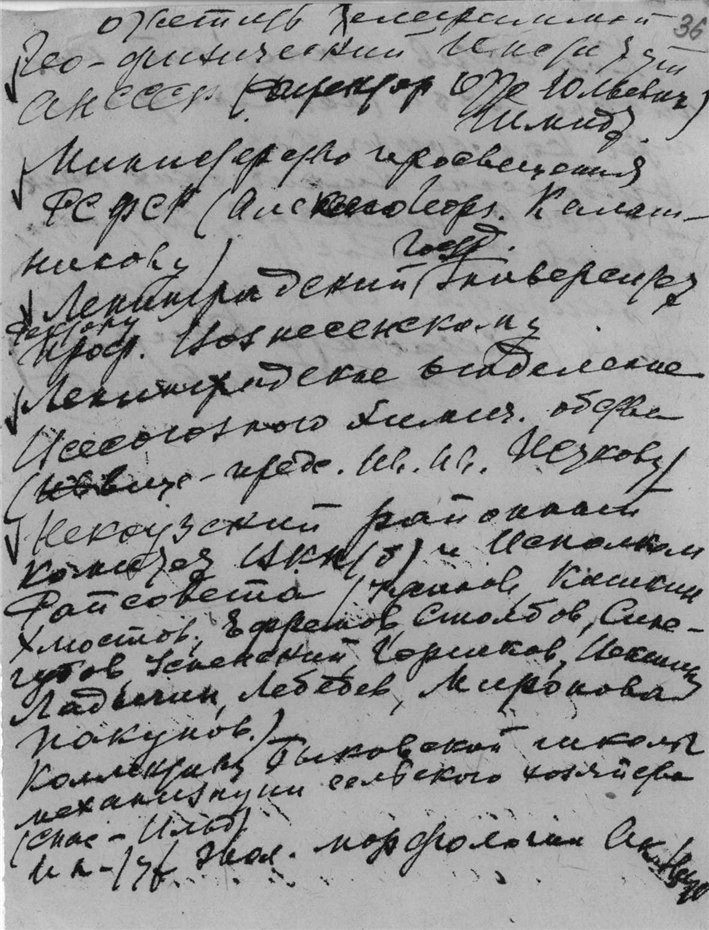 36
Ответить телеграммой
Гео-физический Институт
АН СССР (директор Отто Юльевич
Шмидт)
Министерство просвещения
РСФСР (Алек Георг. Калаш-
никову)
Госуд.
Ленинградский Университет
Ректору
Проф. Вознесенскому
Ленинградское отделение
Всесоюзного Химич. общества
(вице-предс. Ив. Ив. Жукову)
Некоузский районный
комитет ВКП(б) и Исполком
Райсовета (Кашкин
Хмостов, Ефремов, Столбов, Сине-
губов, Успенский, Горшков,
Ладыгин, Лебедев, Миронова
Пакунов.)
Коллективу Быковской школы
механизации сельского хозяйства
(Спас-Ильд)
Ин-ту Эвол. морфологии Ак. Наук